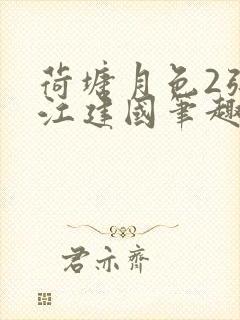 荷塘月色2张
江建国笔趣
君亦齐